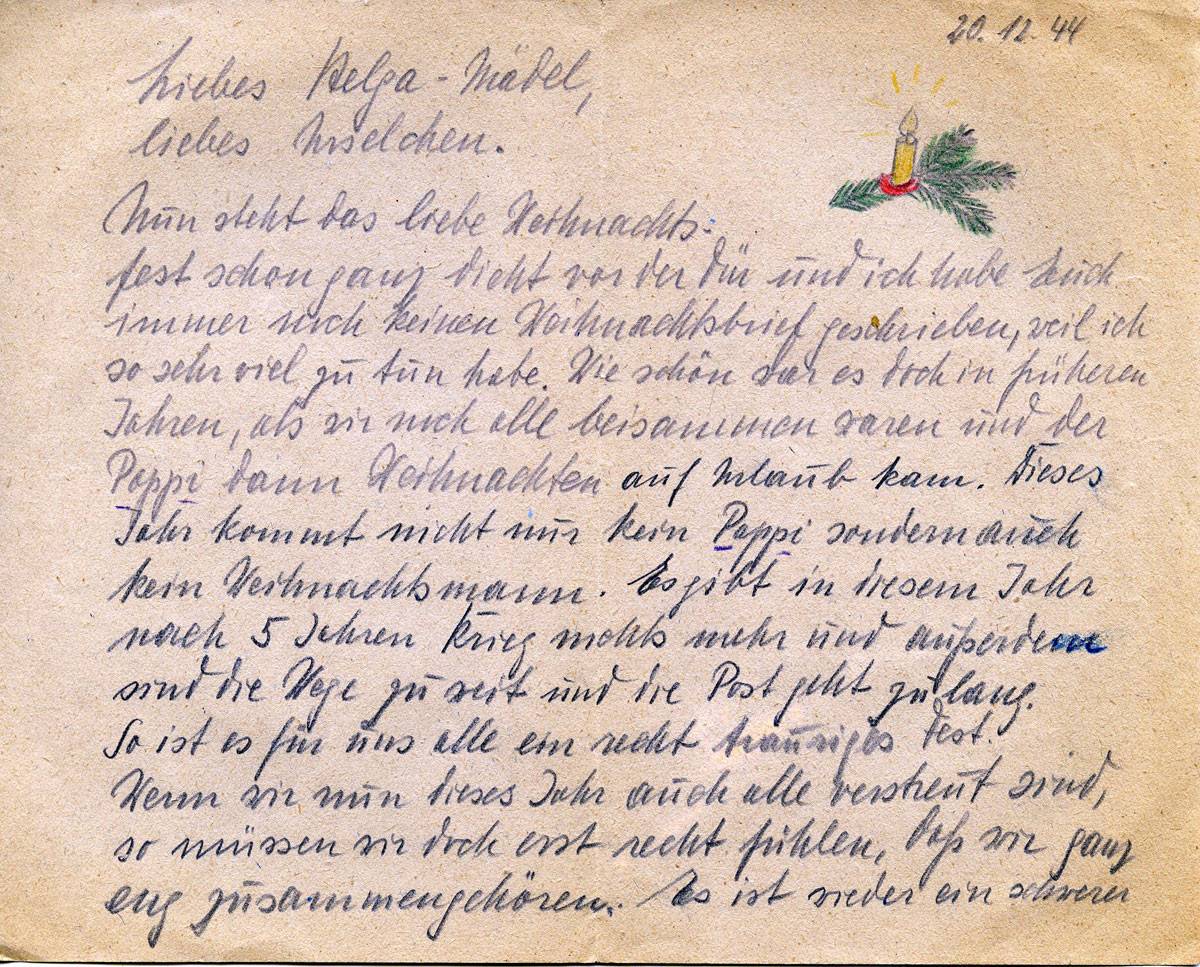 20.12.44
Liebes Helga-Mädel,
liebes Urselchen.
Nun steht das liebe Weihnachts-
fest schon ganz dicht vor der Tür und ich habe Euch
immer noch keinen Weihnachtsbrief geschrieben, weil ich
so sehr viel zu tun habe. Wie schön war es doch in früheren
Jahren, als wir noch alle beisammen waren und der
Pappi dann Weihnachten auf Urlaub kam. Dieses
Jahr kommt nicht nur kein Pappi sondern auch
kein Weihnachtsmann. Es gibt in diesem Jahr
nach 5 Jahren Krieg nichts mehr und außerdem
sind die Wege zu weit und die Post geht zu lang.
So ist es für uns alle ein recht trauriges Fest.
Wenn wir nun dieses Jahr auch alle verstreut sind,
so müssen wir doch erst recht fühlen, daß wir ganz
eng zusammengehören. Es ist wieder ein schwerer